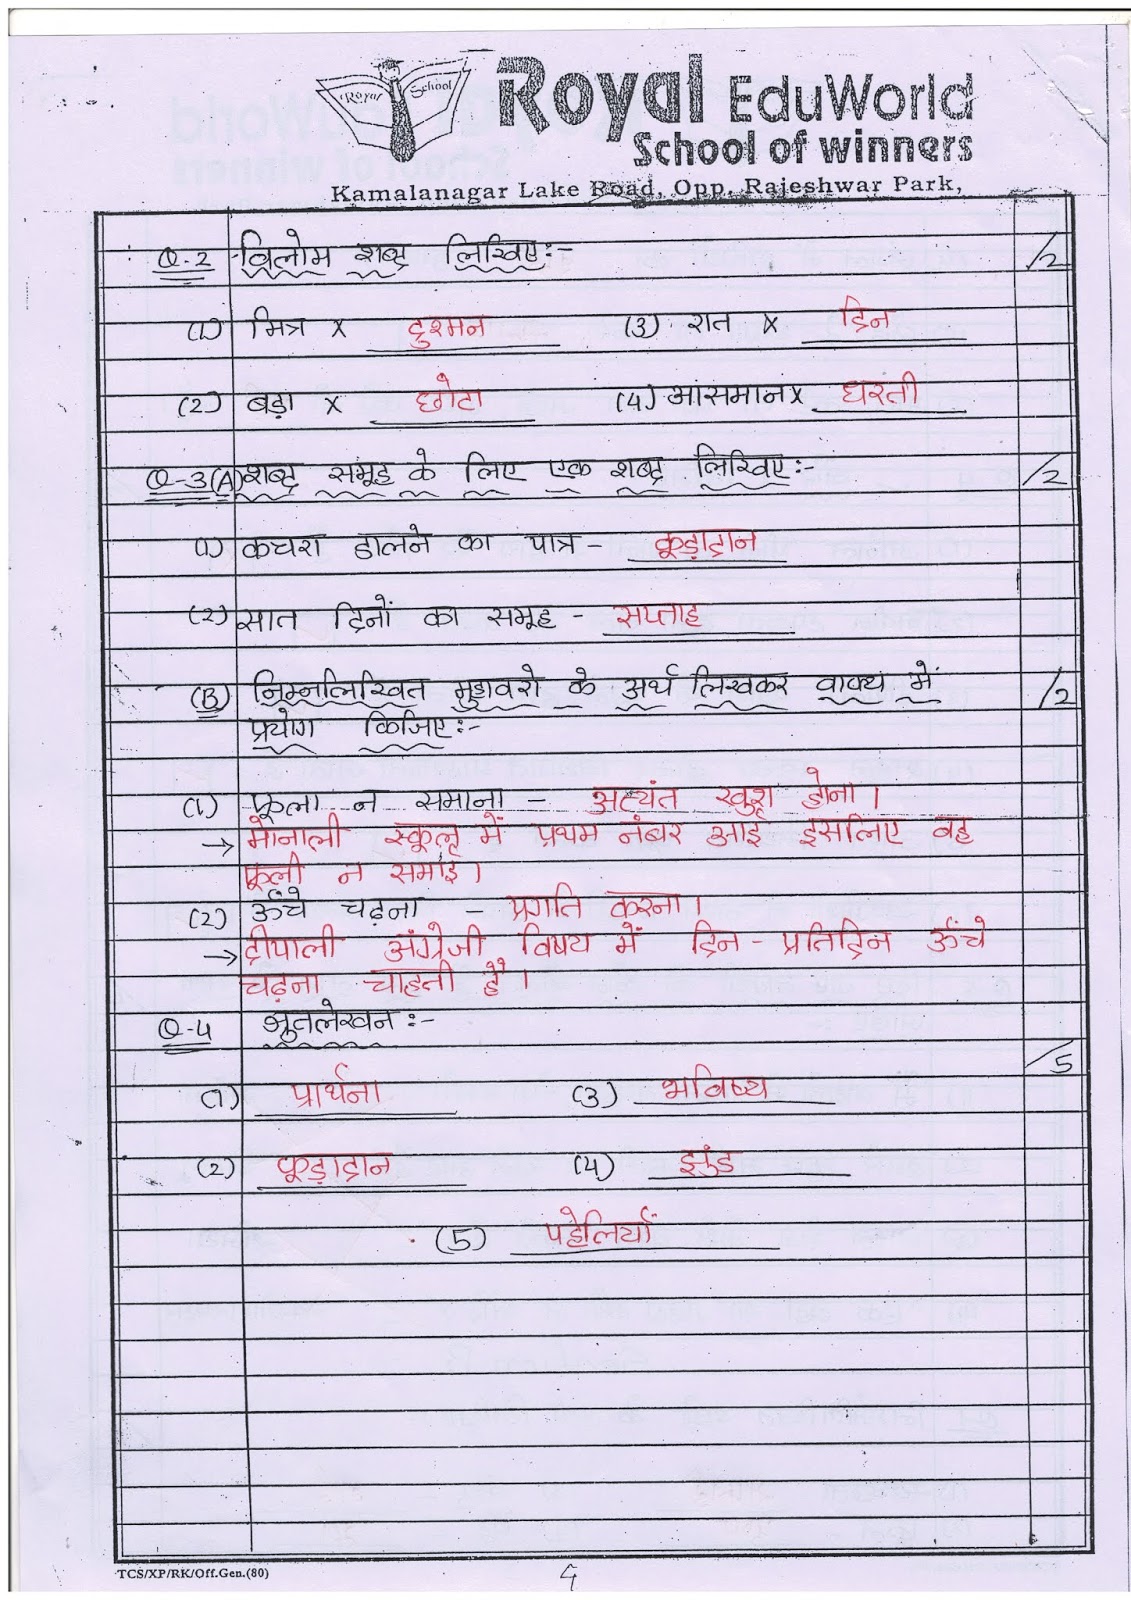 Royal School
Royal EduWorld
School of winners
Kamalanagar Lake Road, Opp. Rajeshwar Park,
Q-2 विलोम शब्द लिखिए:- /2
(1) मित्र x दुश्मन (3) रात x दिन
(2) बड़ा x छोटा (4) आसमान x धरती
Q-3(A) शब्द समूह के लिए एक शब्द लिखिए:- /2
(1) कचरा डालने का पात्र - कूड़ादान
(2) सात दिनों का समूह - सप्ताह
(B) निम्नलिखित मुहावरो के अर्थ लिखकर वाक्य में /2
प्रयोग किजिए:-
(1) फूला न समाना - अत्यंत खुश होना।
→ मोनाली स्कूल में प्रथम नंबर आई इसलिए वह
फूली न समाई।
(2) ऊँचे चढ़ना - प्रगति करना।
→ दीपाली अंग्रेजी विषय में दिन-प्रतिदिन ऊँचे
चढ़ना चाहती है।
Q-4 श्रुतलेखन:-
/5
(1) प्रार्थना (3) भविष्य
(2) कूड़ादान (4) झुंड
(5) पहेलियाँ
TCS/XP/RK/Off.Gen.(80)
4